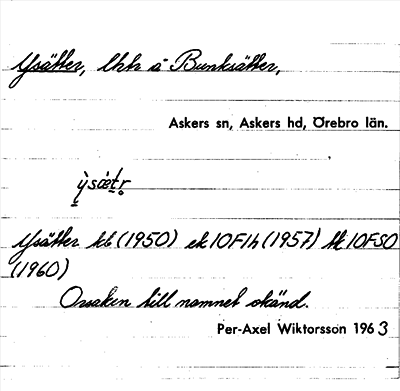 Ysätter, lht å Bunksätter,
Askers sn, Askers hd, Örebro län.
ỳsæ̀tr̥
Ysätter kb (1950) ek 10F1h (1957) tk 10FSO
(1960)
Orsaken till namnet okänd.
Per-Axel Wiktorsson 1963